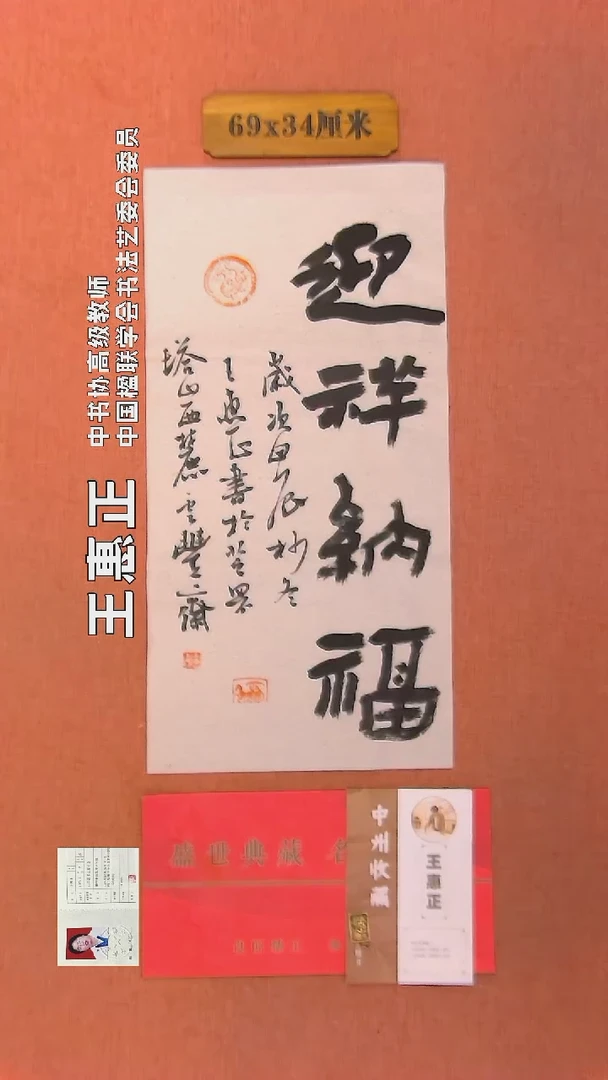 69x34厘米
迎祥納福
歲次甲辰杪冬
王惠正書於芝罘
塔山西麓雲豐齋
王惠正
中书协高级教师
中国楹联学会书法艺委会委员
盛世典藏
中州收藏
王惠正